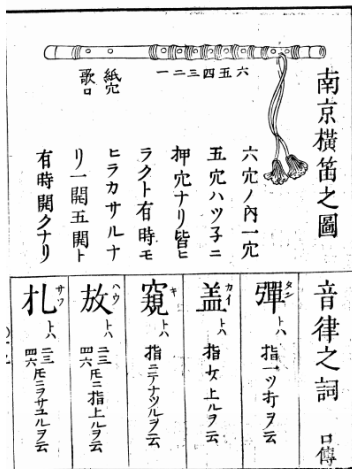 南京橫笛之圖
六五四三二一
紙穴
歌口
六穴ノ內一穴
五穴ハツ子ニ
押穴ナリ皆ヒ
ラクト有時モ
ヒラカサルナ
リ一開五開ト
有時開クナリ
音律之詞 口傳
彈タントハ 指一ツ打ヲ云
盖カイトハ 指女上ルヲ云
窺キトハ 指ニテナツルヲ云
放ヘウトハ 二三四六𪜈ニ指上ルヲ云
札サツトハ 二三四六𪜈ニヲサユルヲ云